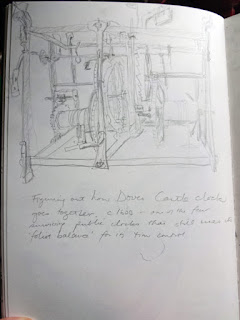 Figuring out how Dover Castle clock
goes together, c.1605 - one of the few
surviving public clocks that still uses a
'foliot balance' for its time control